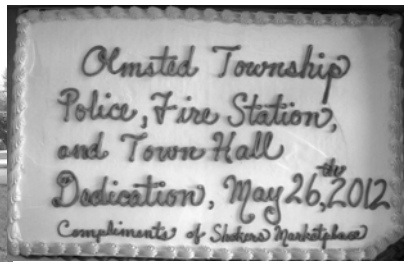 Olmsted Township
Police, Fire Station,
and Town Hall
Dedication, May 26,th 2012
Compliments of Shakers Marketplace